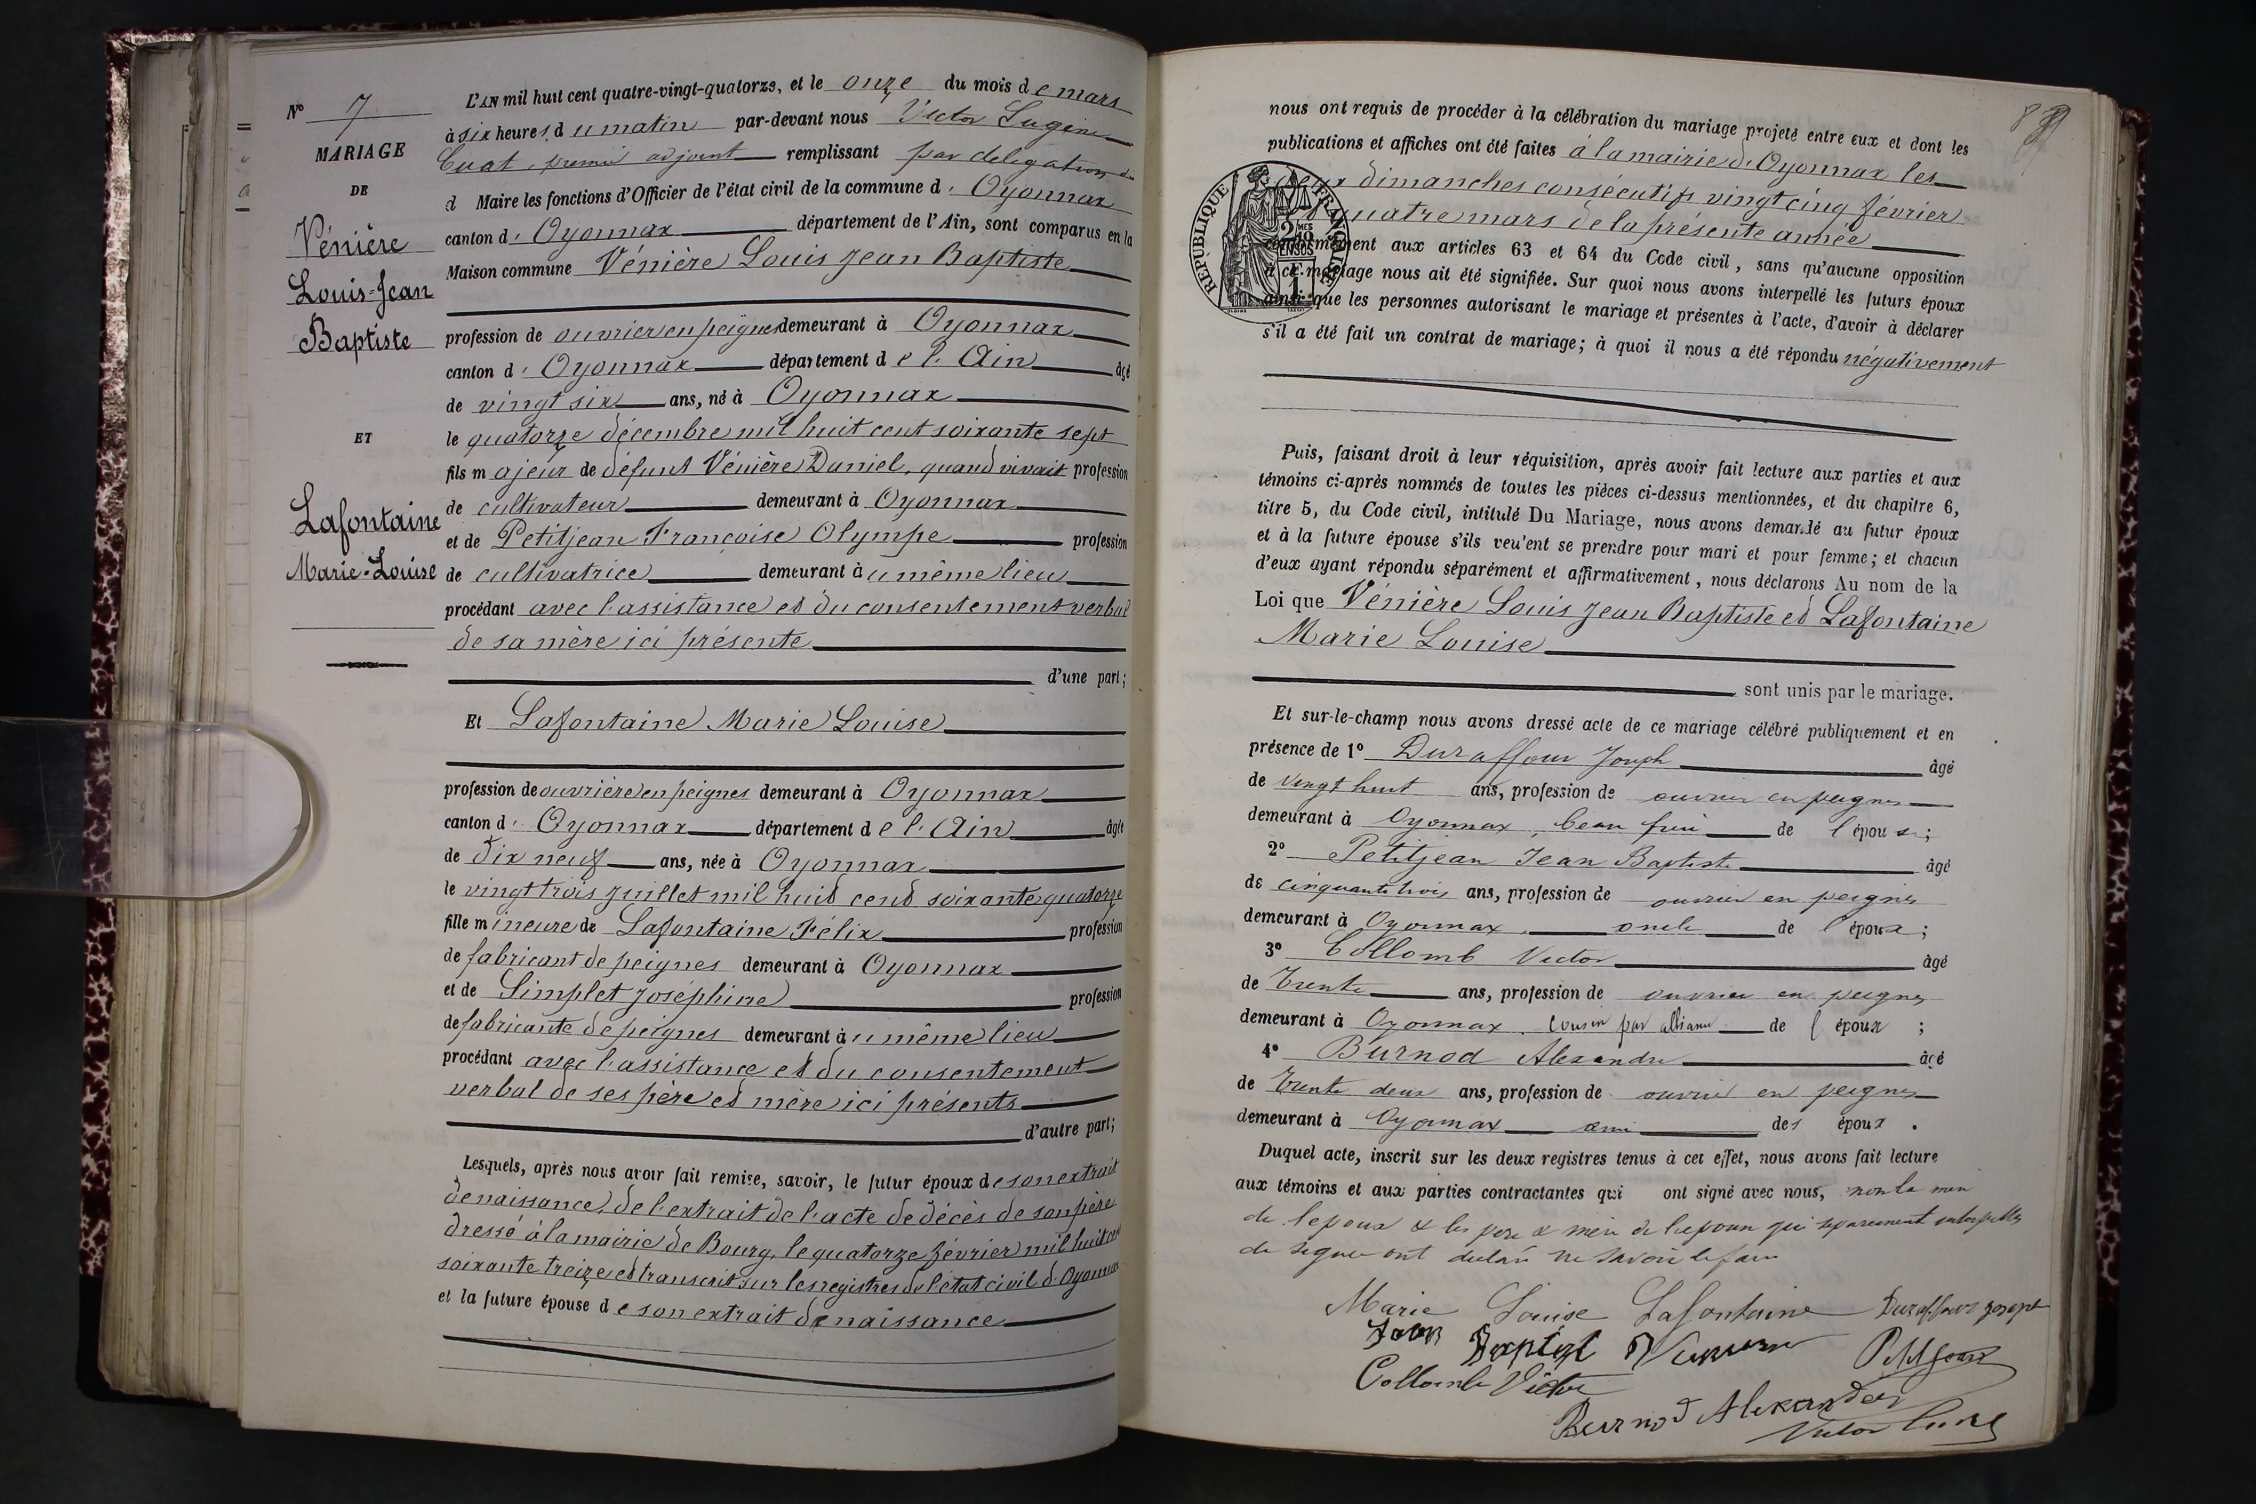 N° 7
MARIAGE
DE
Vénière
Louis-Jean
Baptiste
ET
Lafontaine
Marie-Louise
L'AN mil huit cent quatre-vingt-quatorze, et le onze du mois de mars
à six heures du matin par-devant nous Victor Eugène
Cuat, premier adjoint remplissant par délégation du
d Maire les fonctions d'Officier de l'état civil de la commune d'Oyonnax
canton d'Oyonnax département de l'Ain, sont comparus en la
Maison commune Vénière Louis Jean Baptiste
profession de ouvrier en peignes demeurant à Oyonnax
canton d'Oyonnax département de l'Ain âgé
de vingt six ans, né à Oyonnax
le quatorze décembre mil huit cent soixante sept
fils majeur de défunt Vénière Daniel, quand vivait profession
de cultivateur demeurant à Oyonnax
et de Petitjean Françoise Olympe profession
de cultivatrice demeurant au même lieu
procédant avec l'assistance et du consentement verbal
de sa mère ici présente
d'une part;
Et Lafontaine Marie Louise
profession de ouvrière en peignes demeurant à Oyonnax
canton d'Oyonnax département de l'Ain âgée
de dix neuf ans, née à Oyonnax
le vingt trois juillet mil huit cent soixante quatorze
fille mineure de Lafontaine Félix profession
de fabricant de peignes demeurant à Oyonnax
et de Simplet Joséphine profession
de fabricante de peignes demeurant au même lieu
procédant avec l'assistance et du consentement
verbal de ses père et mère ici présents
d'autre part;
Lesquels, après nous avoir fait remise, savoir, le futur époux de son extrait
de naissance, de l'extrait de l'acte de décès de son père
dressé à la mairie de Bourg, le quatorze février mil huit cent
soixante treize et transcrit sur les registres de l'état civil d'Oyonnax
et la future épouse de son extrait de naissance
nous ont requis de procéder à la célébration du mariage projeté entre eux et dont les
publications et affiches ont été faites à la mairie d'Oyonnax les
deux dimanches consécutifs vingt cinq février
et quatre mars de la présente année
RÉPUBLIQUE FRANÇAISE
conformément aux articles 63 et 64 du Code civil, sans qu'aucune opposition
à ce mariage nous ait été signifiée. Sur quoi nous avons interpellé les futurs époux
ainsi que les personnes autorisant le mariage et présentes à l'acte, d'avoir à déclarer
s'il a été fait un contrat de mariage; à quoi il nous a été répondu négativement
Puis, faisant droit à leur réquisition, après avoir fait lecture aux parties et aux
témoins ci-après nommés de toutes les pièces ci-dessus mentionnées, et du chapitre 6,
titre 5, du Code civil, intitulé Du Mariage, nous avons demandé au futur époux
et à la future épouse s'ils veu'ent se prendre pour mari et pour femme; et chacun
d'eux ayant répondu séparément et affirmativement, nous déclarons Au nom de la
Loi que Vénière Louis Jean Baptiste et Lafontaine
Marie Louise
sont unis par le mariage.
Et sur-le-champ nous avons dressé acte de ce mariage célébré publiquement et en
présence de 1° Duraffour Joseph âgé
de vingt huit ans, profession de ouvrier en peignes
demeurant à Oyonnax, beau frère de l'épouse;
2° Petitjean Jean Baptiste âgé
de cinquante trois ans, profession de ouvrier en peignes
demeurant à Oyonnax, oncle de l'époux;
3° Collomb Victor âgé
de trente ans, profession de ouvrier en peignes
demeurant à Oyonnax, cousin par alliance de l'époux;
4° Burnod Alexandre âgé
de trente deux ans, profession de ouvrier en peignes
demeurant à Oyonnax ami des époux.
Duquel acte, inscrit sur les deux registres tenus à cet effet, nous avons fait lecture
aux témoins et aux parties contractantes qui ont signé avec nous, non la mère
de l'époux & les père & mère de l'épouse qui séparément interpellés
de signer ont déclaré ne savoir le faire
Marie Louise Lafontaine Duraffour Joseph
Jean Baptist Petitjean
Collomb Victor
Burnod Alexandre
Victor Cuat